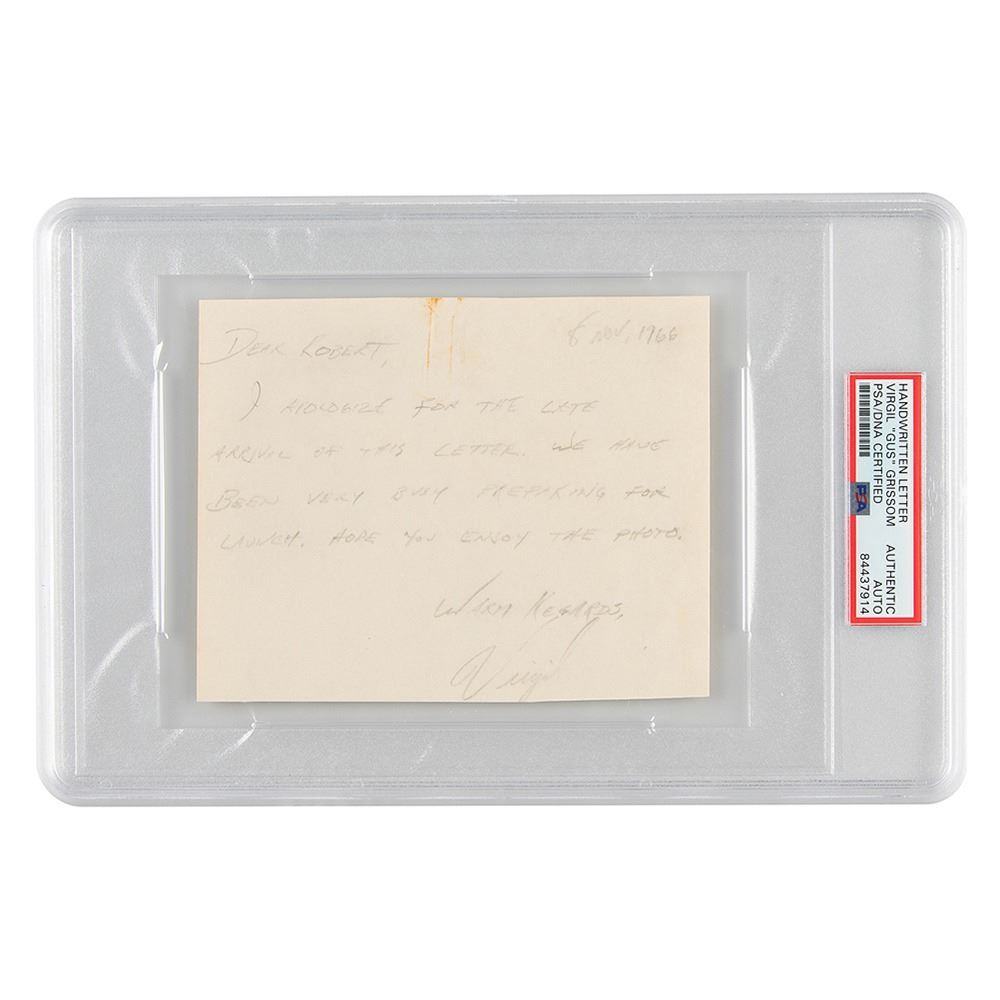 Dear Robert,
8 Nov, 1966
I apologize for the late
arrival of this letter. We have
been very busy preparing for
launch. Hope you enjoy the photo.
Warm Regards,
Virgil
HANDWRITTEN LETTER
VIRGIL "GUS" GRISSOM
PSA/DNA CERTIFIED
PSA
AUTHENTIC
AUTO
84437914